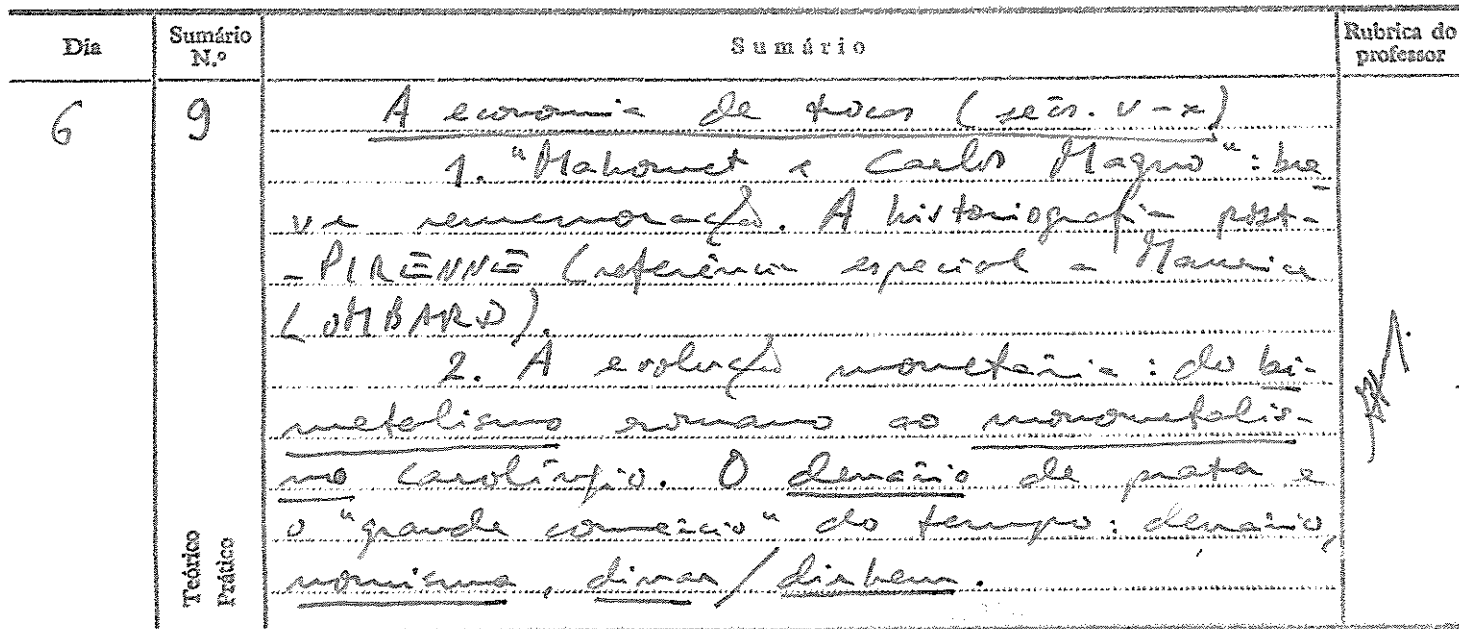 Dia
Sumário N.º
Sumário
Rubrica do professor
6
9
A economia de trocas (sécs. V-X)
1. "Mahomet e Carlos Magno": bre
ve rememoração. A historiografia post-
-PIRENNE (referência especial a Maurice
LOMBARD).
2. A evolução monetária: do bi-
metalismo romano ao monometalis-
mo carolíngio. O denário de prata e
o "grande comércio" do tempo: denário,
nomisma, dinar/dirhem.
Teórico
Prático